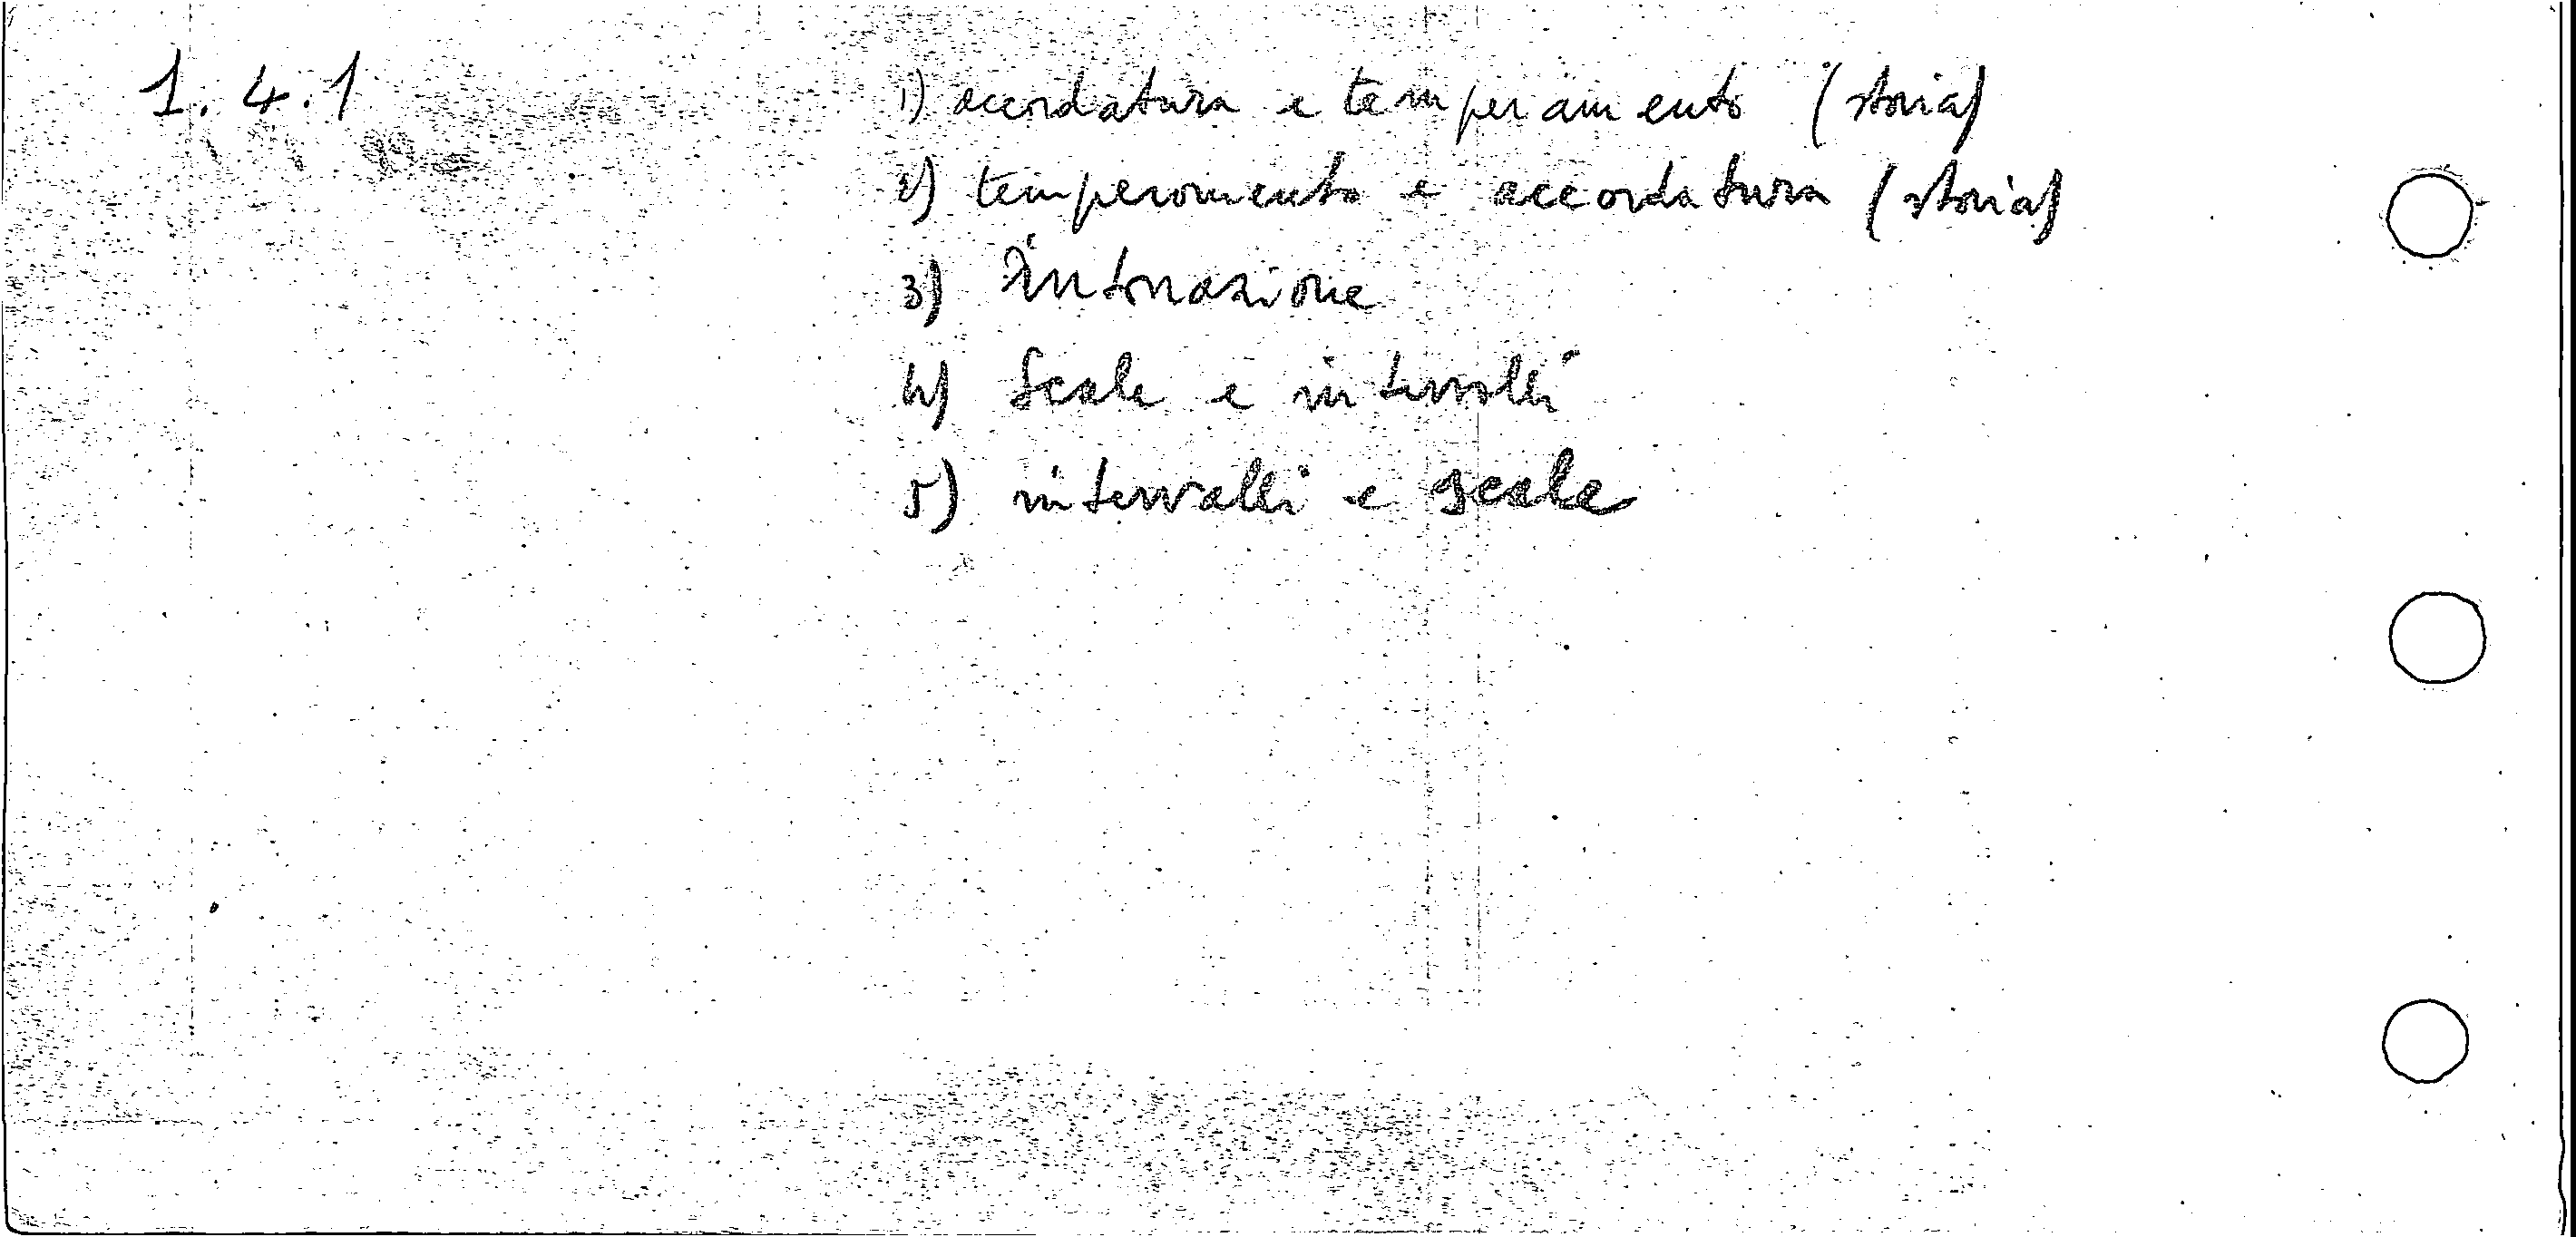 1.4.1
1) accordatura e temperamento (storia)
2) temperamento e accordatura (storia)
3) Intonazione
4) Scale e intervalli
5) intervalli e scale